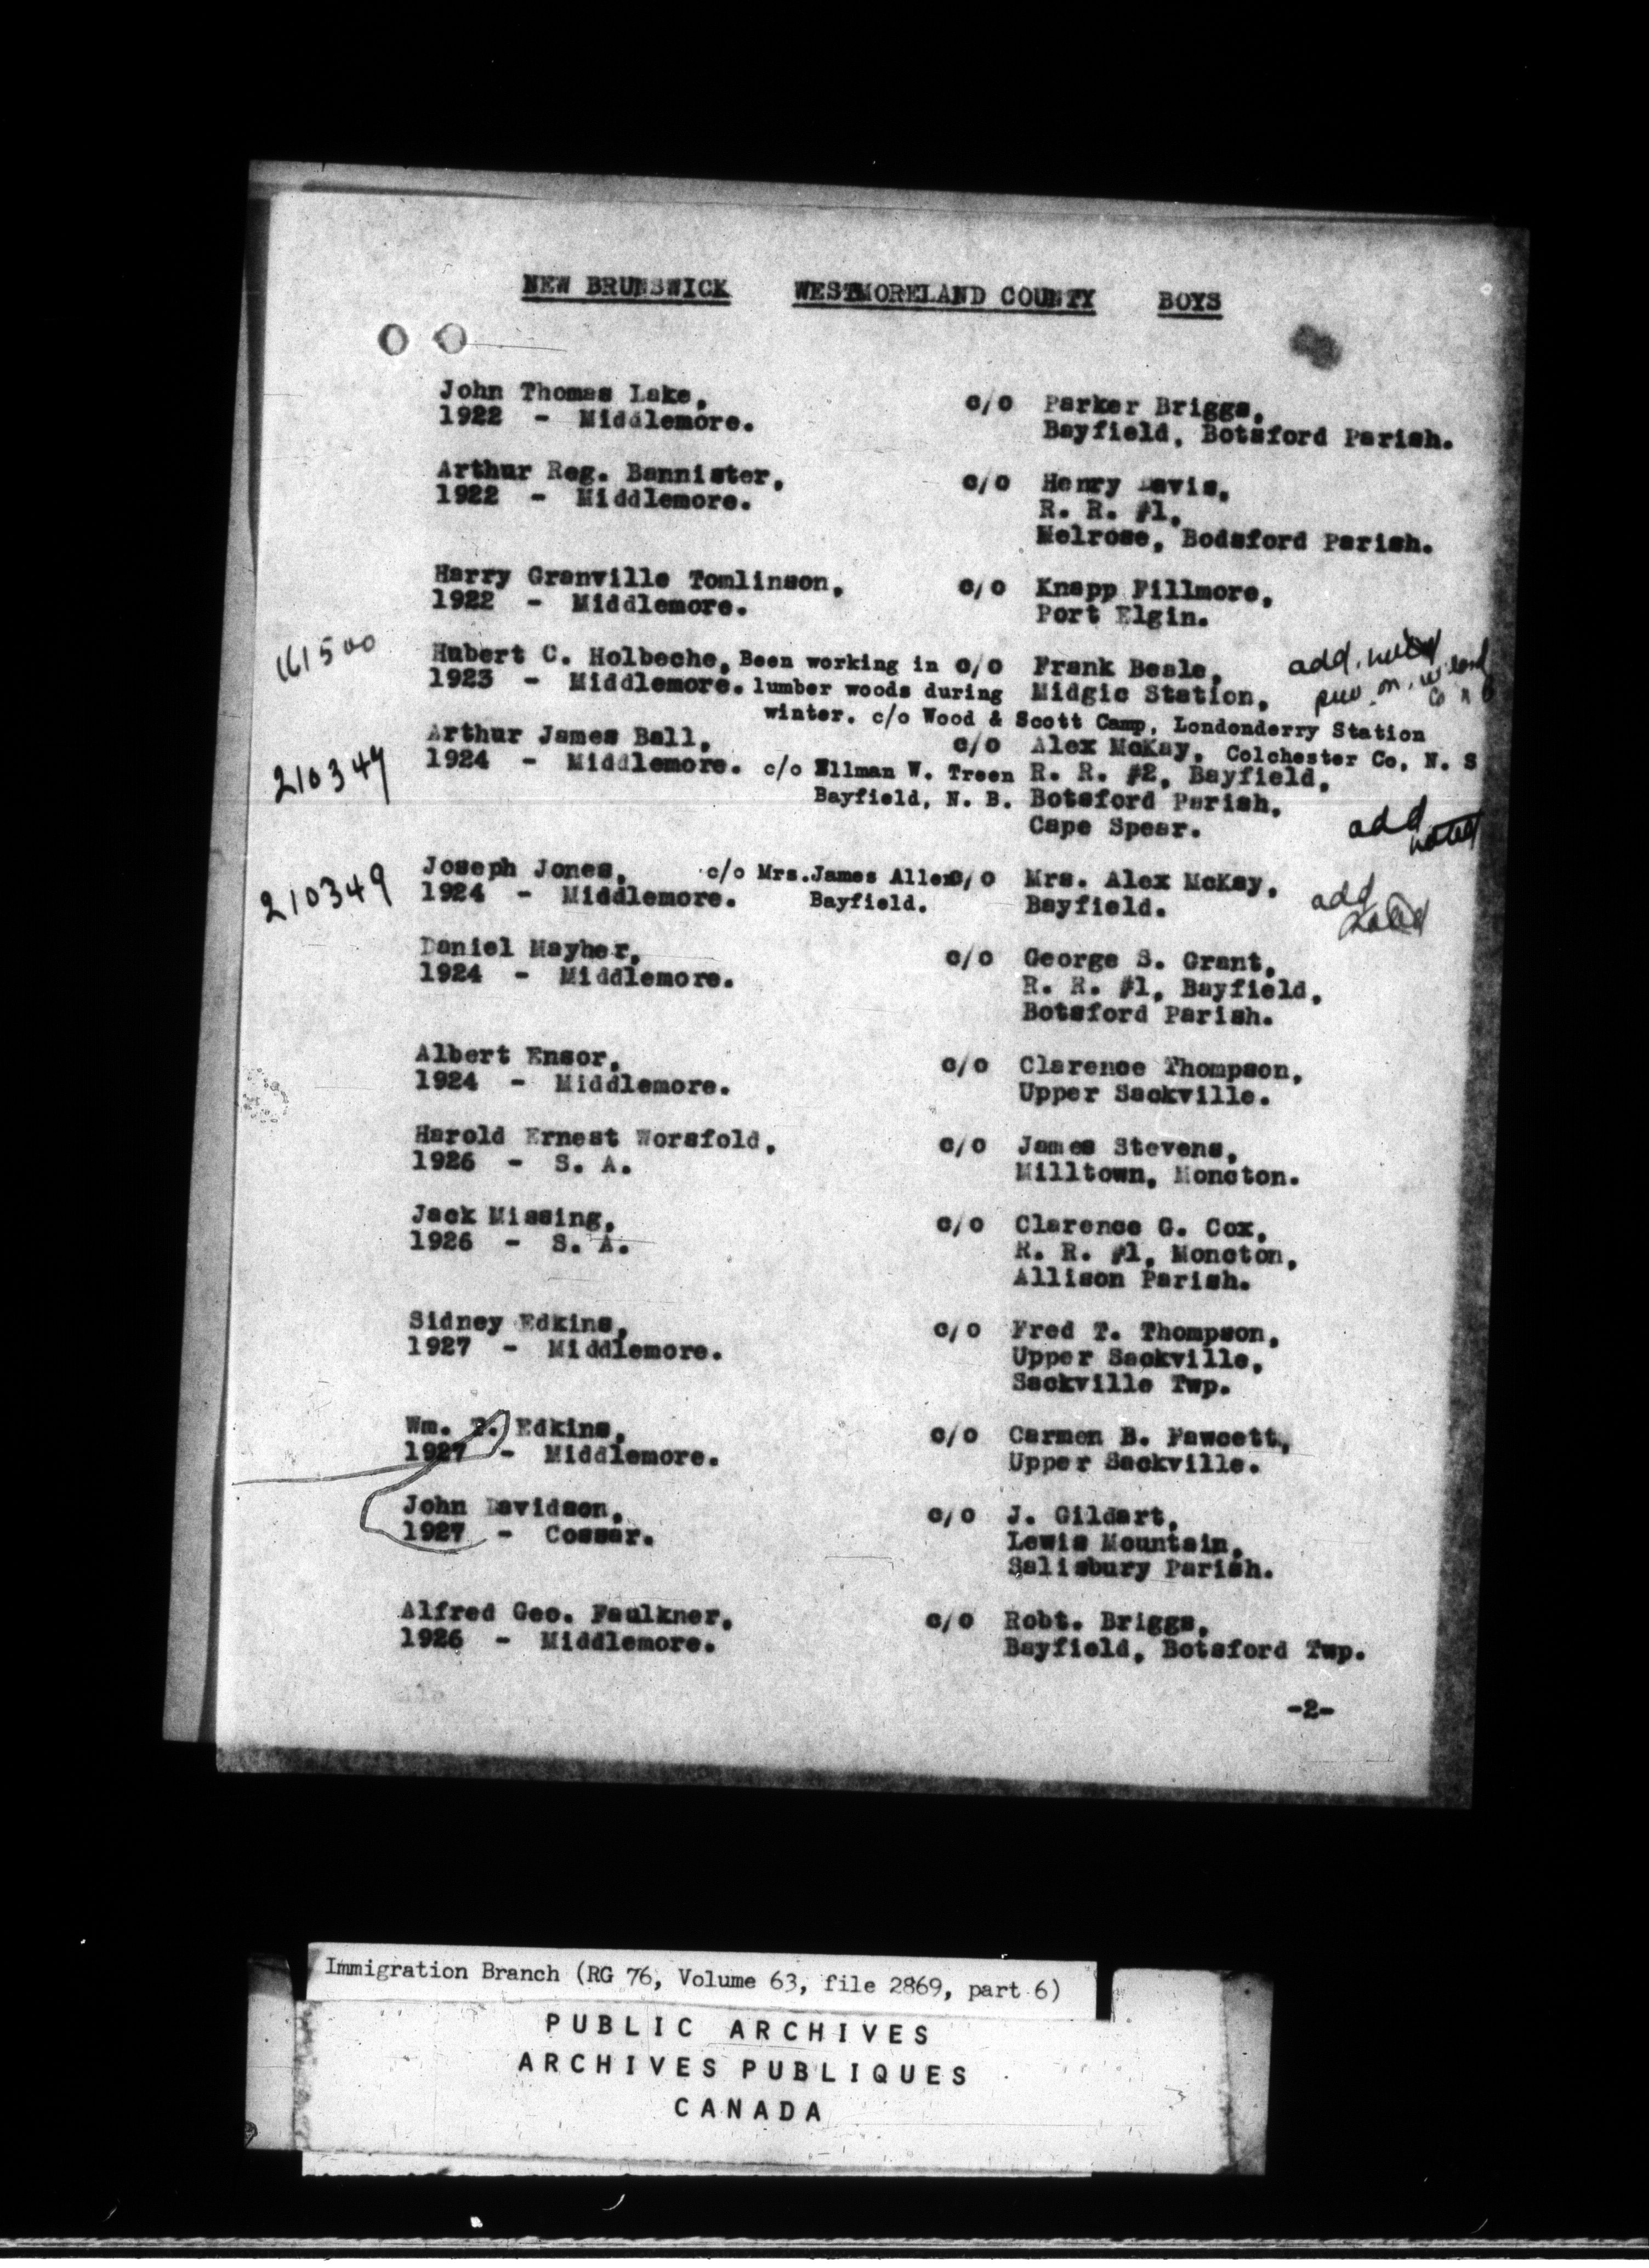 NEW BRUNSWICK WESTMORELAND COUNTY BOYS
John Thomas Lake, c/o Parker Briggs,
1922 - Middlemore. Bayfield, Botsford Parish.
Arthur Reg. Bannister, c/o Henry Davis,
1922 - Middlemore. R. R. #1,
Melrose, Bodsford Parish.
Harry Granville Tomlinson, c/o Knapp Fillmore,
1922 - Middlemore. Port Elgin.
161500 Hubert C. Holbeche, Been working in c/o Frank Beale, add. noted
1923 - Middlemore. lumber woods during Midgic Station,
winter. c/o Wood & Scott Camp, Londonderry Station
Arthur James Ball, c/o Alex McKay, Colchester Co, N. S
210347 1924 - Middlemore. c/o Ellman W. Treen R. R. #2, Bayfield,
Bayfield, N. B. Botsford Parish,
Cape Spear. add noted
210349 Joseph Jones, c/o Mrs. James Allen c/o Mrs. Alex McKay,
1924 - Middlemore. Bayfield. Bayfield. add noted
Daniel Mayher, c/o George S. Grant,
1924 - Middlemore. R. R. #1, Bayfield,
Botsford Parish.
Albert Ensor, c/o Clarence Thompson,
1924 - Middlemore. Upper Sackville.
Harold Ernest Worsfold, c/o James Stevens,
1926 - S. A. Milltown, Moncton.
Jack Missing, c/o Clarence G. Cox,
1926 - S. A. R. R. #1, Moncton,
Allison Parish.
Sidney Edkins, c/o Fred T. Thompson,
1927 - Middlemore. Upper Sackville,
Sackville Twp.
Wm. Edkins, c/o Carmen B. Fawcett,
1927 - Middlemore. Upper Sackville.
John Davidson, c/o J. Gildart,
1927 - Cossar. Lewis Mountain,
Salisbury Parish.
Alfred Geo. Faulkner, c/o Robt. Briggs,
1926 - Middlemore. Bayfield, Botsford Twp.
-2-
Immigration Branch (RG 76, Volume 63, file 2869, part 6)
PUBLIC ARCHIVES
ARCHIVES PUBLIQUES
CANADA